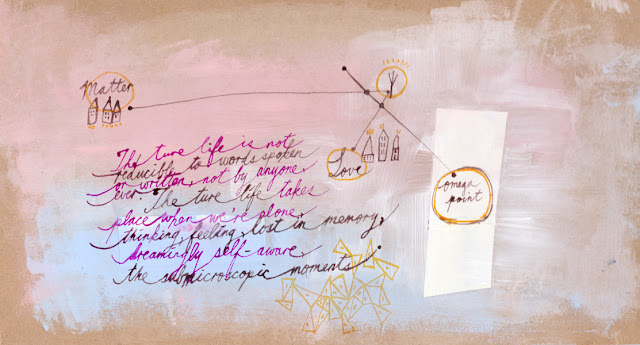 Matter
The ture life is not
reducible to words spoken
or written, not by anyone,
ever. The ture life takes
place when we're alone,
thinking, feeling, lost in memory,
dreamingly self-aware,
the submicroscopic moments.
Love
omega
point